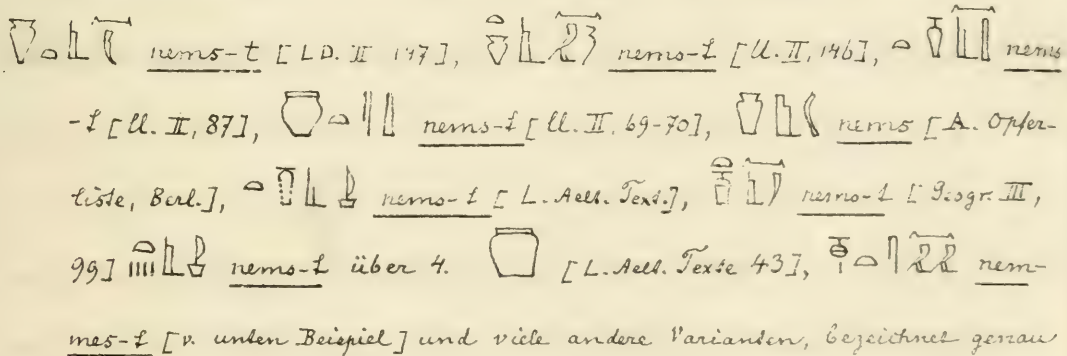 nems-t [LD. II 147], nems-t [ll. II, 146], nems
-t [ll. II, 87], nems-t [ll. II. 69-70], nems [A. Opfer-
liste, Berl.], nems-t [L. Aelt. Text.], nems-t [Geogr. III,
99] nems-t über 4. [L. Aelt. Texte 43], nem-
mes-t [v. unten Beispiel] und viele andere Varianten, bezeichnet genau